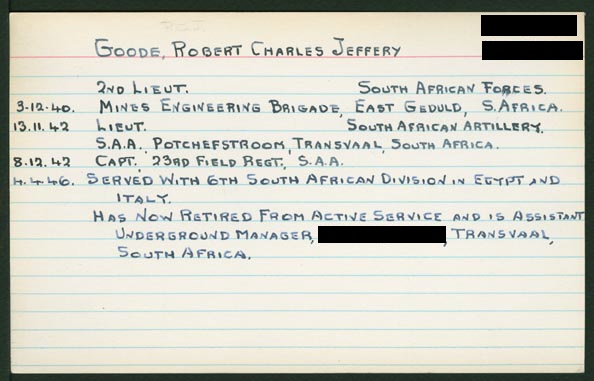 R.C.J.
GOODE, ROBERT CHARLES JEFFERY
2ND LIEUT. SOUTH AFRICAN FORCES.
3-12-40. MINES ENGINEERING BRIGADE, EAST GEDULD, S. AFRICA.
13.11.42 LIEUT. SOUTH AFRICAN ARTILLERY,
S.A.A., POTCHEFSTROOM, TRANSVAAL, SOUTH AFRICA.
8.12.42 CAPT., 23RD FIELD REGT., S.A.A.
4.4.46. SERVED WITH 6TH SOUTH AFRICAN DIVISION IN EGYPT AND
ITALY.
HAS NOW RETIRED FROM ACTIVE SERVICE AND IS ASSISTANT
UNDERGROUND MANAGER, , TRANSVAAL,
SOUTH AFRICA.